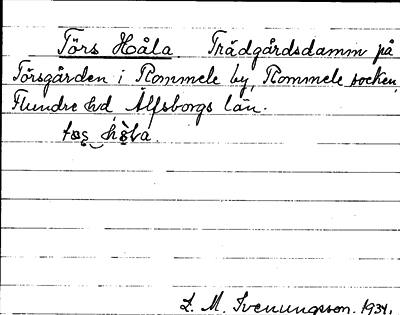 Törs Håla Trädgårdsdamm på
Törsgården i Rommele by, Rommele socken,
Flundre hd Älfsborgs län.
L. M. Svenungsson. 1934.